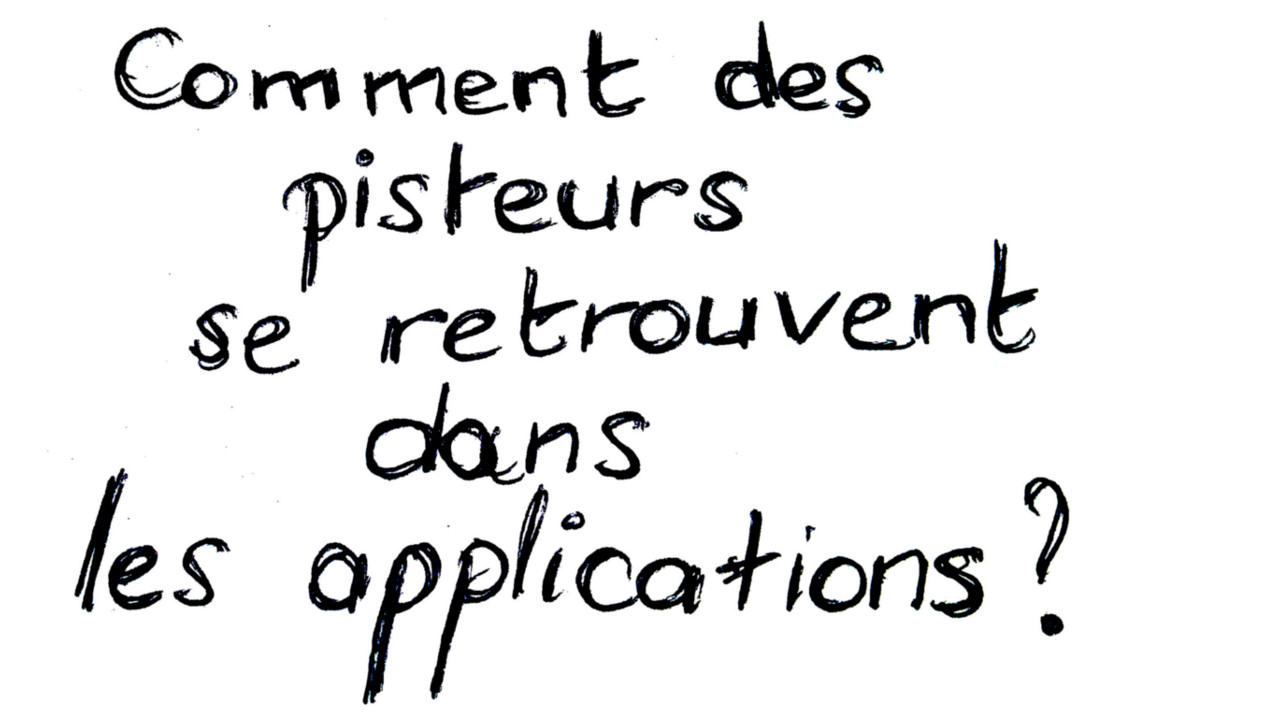 Comment des
pisteurs
se retrouvent
dans
les applications?